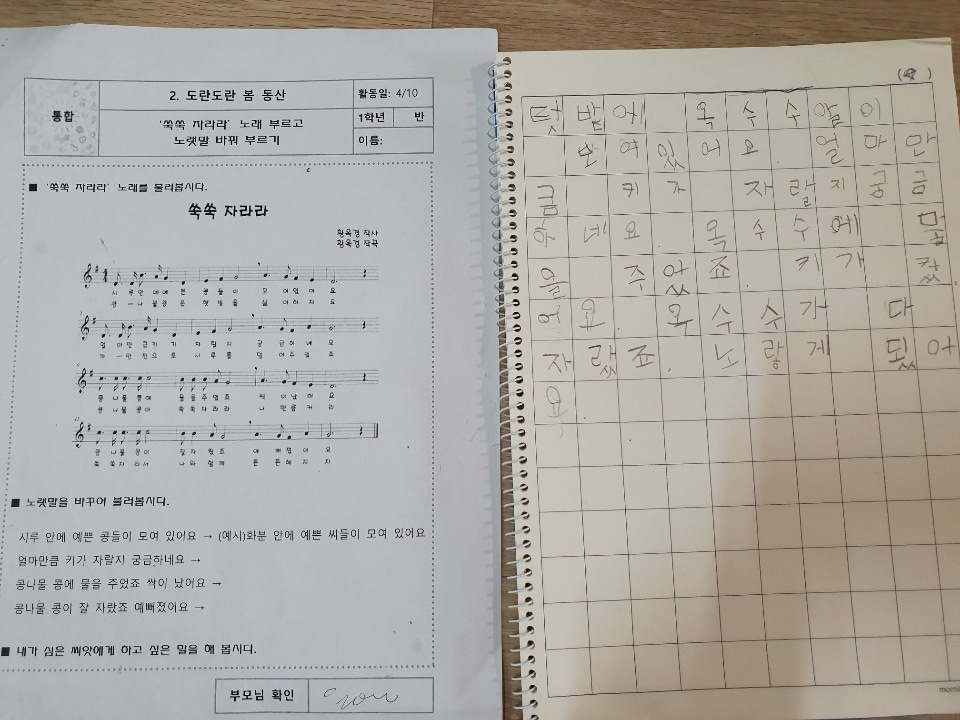 통합
2. 도란도란 봄 동산
활동일: 4/10
'쑥쑥 자라라' 노래 부르고
노랫말 바꿔 부르기
1학년 반
이름:
■ '쑥쑥 자라라' 노래를 불러봅시다.
쑥쑥 자라라
황옥경 작사
황옥경 작곡
시 루 안 에 예 쁜 콩 들 이 모 여 있 어 요
얼 마 만 큼 키 가 자 랄 지 궁 금 하 네 요
콩 나 물 콩 에 물 을 주 었 죠 싹 이 났 어 요
콩 나 물 콩 이 잘 자 랐 죠 예 뻐 졌 어 요
쑥 쑥 자 라 서 나 와 함 께 튼 튼 해 지 자
■ 노랫말을 바꾸어 불러봅시다.
시루 안에 예쁜 콩들이 모여 있어요 → (예시)화분 안에 예쁜 씨들이 모여 있어요
얼마만큼 키가 자랄지 궁금하네요 →
콩나물 콩에 물을 주었죠 싹이 났어요 →
콩나물 콩이 잘 자랐죠 예뻐졌어요 →
■ 내가 심은 씨앗에게 하고 싶은 말을 해 봅시다.
부모님 확인
텃밭에 옥수수알이
모여있어요 얼마만
큼 키가 자랄지 궁금
하네요 옥수수에 물
을 주았죠 키가 컸
어요. 옥수수가 다
자랐죠. 노랗게 됬어
요.